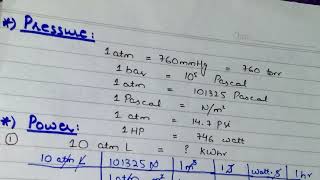 *) Pressure:
1 atm = 760mmHg = 760 torr
1 bar = 10⁵ Pascal
1 atm = 101325 Pascal
1 Pascal = N/m²
1 atm = 14.7 Psi
*) Power:
1 HP = 746 watt
① 10 atm L = ? kWhr
10 atm L | 101325 N | 1 m³ | 1 J | watt.S | 1 hr
1 m³